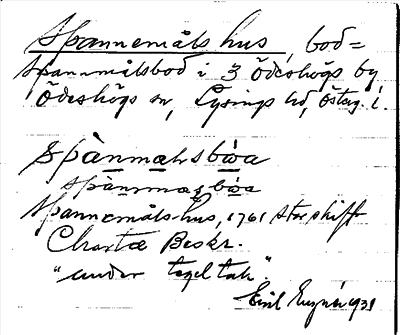 Spannemåls hus, bod=
spannmålsbod i 3 Ödeshögs by
Ödeshögs sn, Lysings hd, Östag. l.
spànmahsbωa
spànmasbωa
Spannemåls-hus, 1761 storskift
Charta Beskr.
"under tegel tak".
Emil 1931